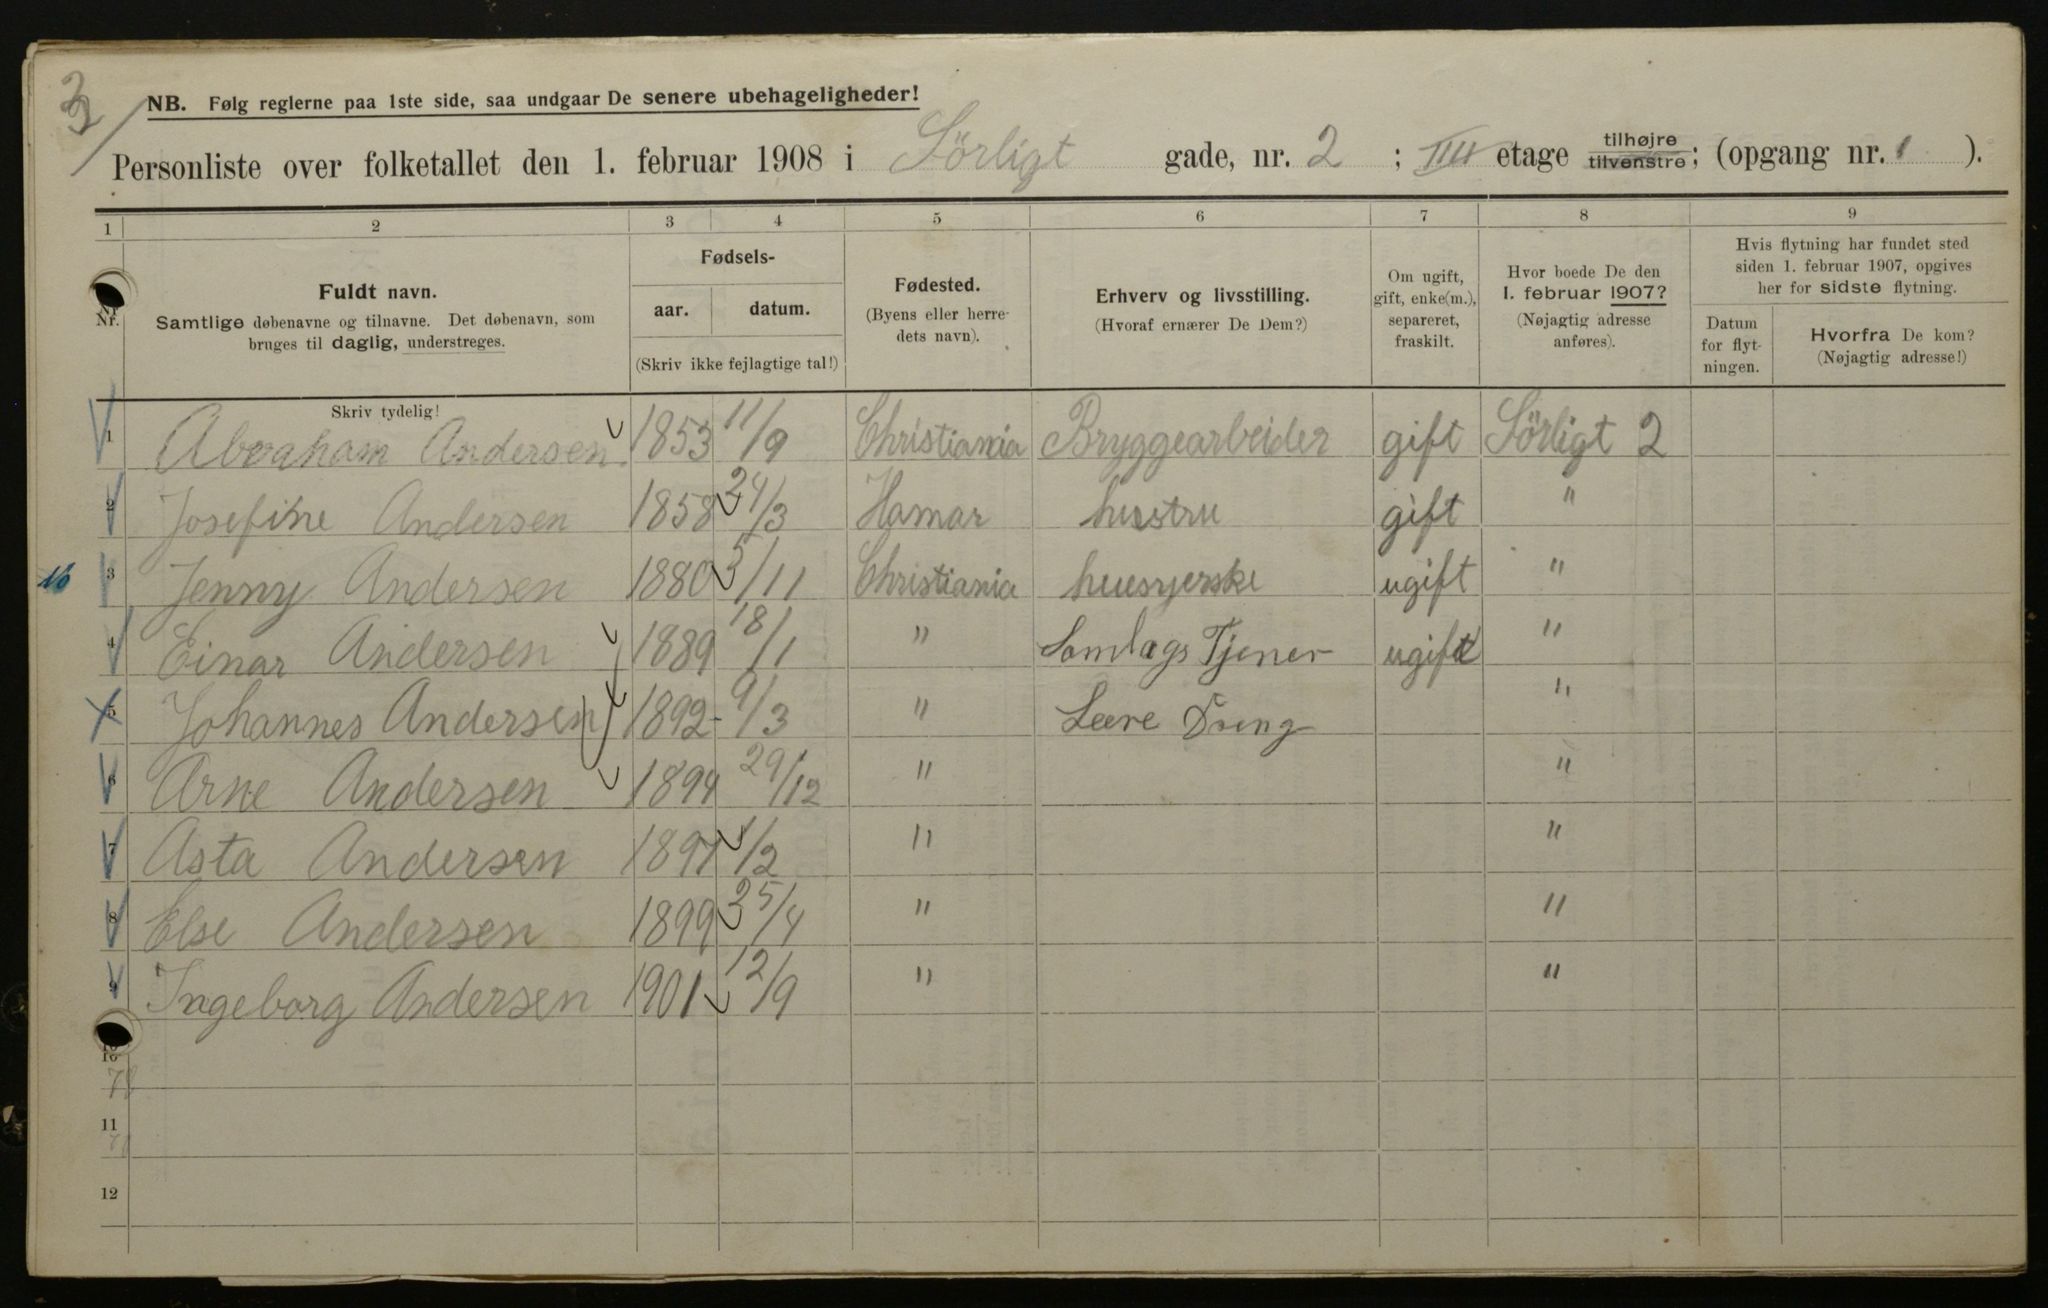 3
NB. Følg reglerne paa 1ste side, saa undgaar De senere ubehageligheder!
Personliste over folketallet den 1. februar 1908 i Sörligt gade, nr. 2 ; IIII etage tilhøjre tilvenstre; (opgang nr. 1 ).
1 2 3 4 5 6 7 8 9
Nr.
Fuldt navn.
Samtlige døbenavne og tilnavne. Det døbenavn, som
bruges til daglig, understreges.
Skriv tydelig!
Fødsels-
aar. datum.
(Skriv ikke fejlagtige tal!)
Fødested.
(Byens eller herre-
dets navn).
Erhverv og livsstilling.
(Hvoraf ernærer De Dem?)
Om ugift,
gift, enke(m.),
separeret,
fraskilt.
Hvor boede De den
1. februar 1907?
(Nøjagtig adresse
anføres).
Hvis flytning har fundet sted
siden 1. februar 1907, opgives
her for sidste flytning.
Datum
for flyt-
ningen.
Hvorfra De kom?
(Nøjagtig adresse!)
1 Abraham Andersen 1853 11/9 Christiania Bryggearbeider gift Sörligt 2
2 Josefine Andersen 1858 24/3 Hamar hustru gift "
3 Jenny Andersen 1880 5/11 Christiania huusyerske ugift "
4 Einar Andersen 1889 18/1 " Samlags Tjener ugift "
5 Johannes Andersen 1892 9/3 " Lære Dreng "
6 Arne Andersen 1894 29/12 " "
7 Asta Andersen 1897 1/2 " "
8 Else Andersen 1899 25/4 " "
9 Ingeborg Andersen 1901 12/9 " "
10
11
12